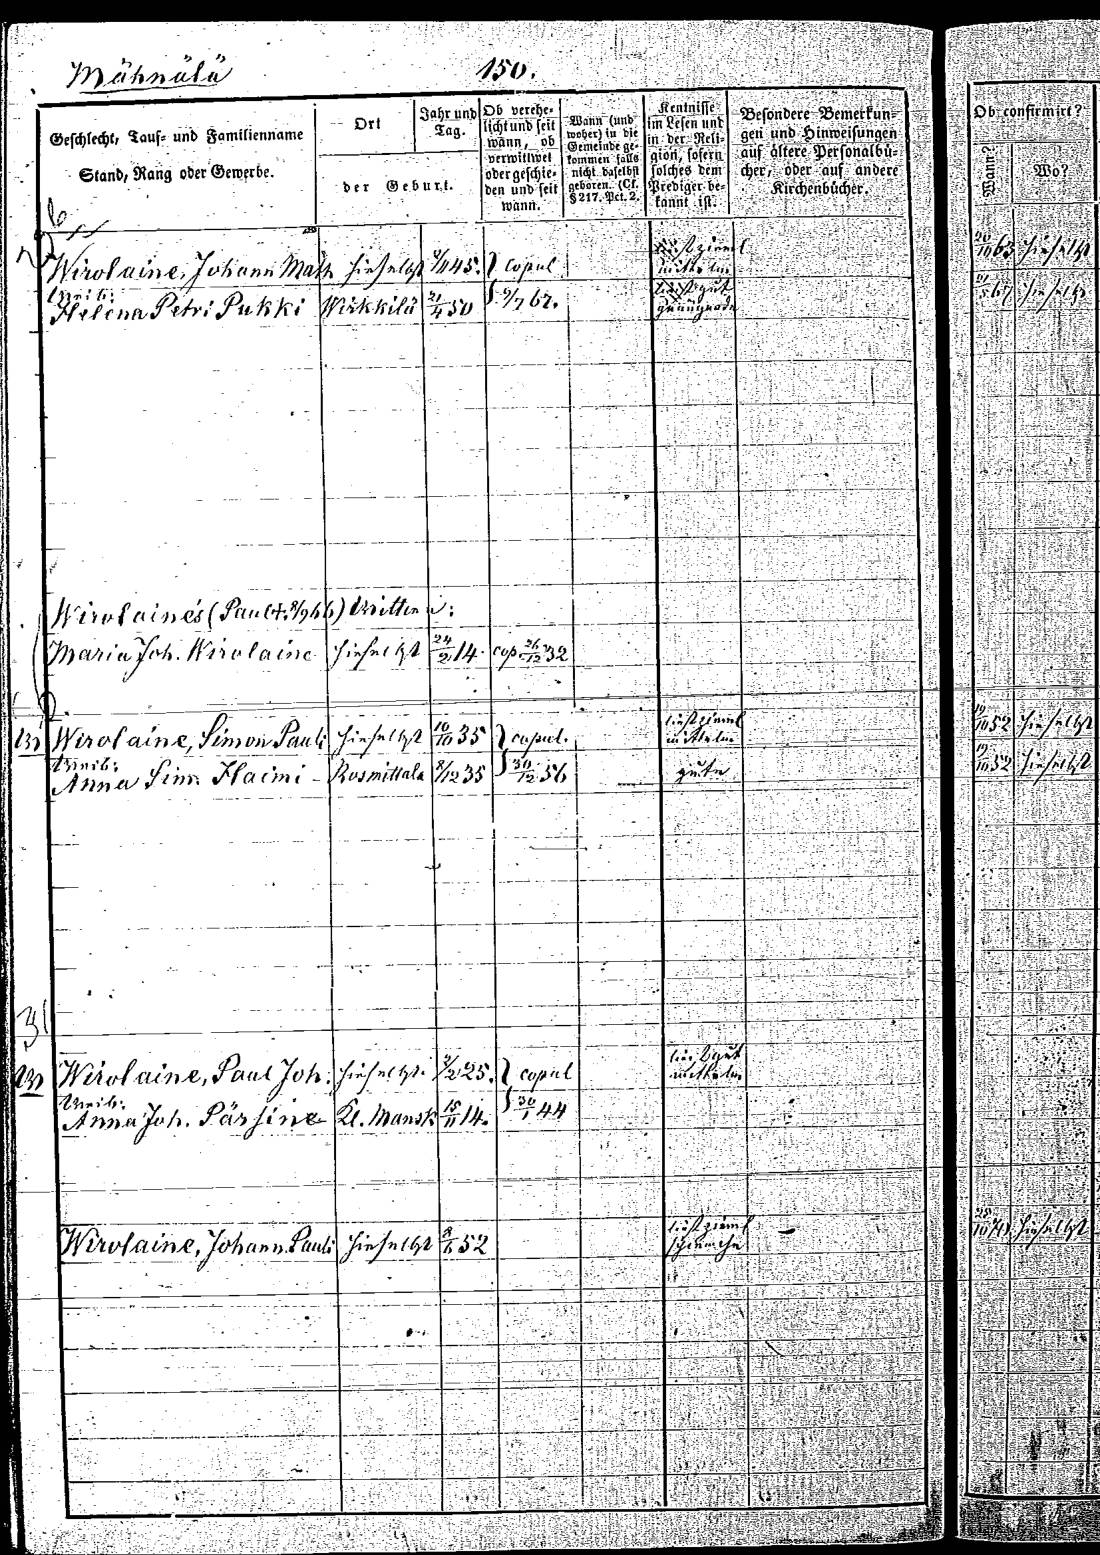 Mähnälä 150.
Geschlecht, Tauf- und Familienname
Stand, Rang oder Gewerbe.
Ort
Jahr und Tag.
der Geburt.
Ob verehe-
licht und seit
wann, ob
verwittwet
oder geschie-
den und seit
wann.
Wann (und
woher) in die
Gemeinde ge-
kommen falls
nicht daselbst
geboren. (Cf.
§ 217. Pct. 2.
Kentnisse
im Lesen und
in der Reli-
gion, sofern
solches dem
Prediger be-
kannt ist.
Besondere Bemerkun-
gen und Hinweisungen
auf ältere Personalbü-
cher, oder auf andere
Kirchenbücher.
Ob confirmirt?
Wann?
Wo?
Wirolaine, Johann Math hieselbst 45. copul. liest zieml mittelm 63 hieselbst
Weib:
Helena Petri Pukki Wirkkilä 21/4 50 9/7 67. liest gut 67 hieselbst
Wirolaines (Paul +. ) Wittwe:
Maria Joh. Wirolaine hieselbst 24/2 14. cop. 26/12 32
Wirolaine, Simon Pauli hieselbst 10/10 35 copul. liest zieml mittelm 19/10 52 hieselbst
Weib:
Anna Sim. Haimi Rosmittala 8/12 35 30/12 56 gute 19/10 52 hieselbst
31
Wirolaine, Paul Joh. hieselbst. 25. copul liest gut mittelm
Weib:
Anna Joh. Pärsine Kl. Mansk 15/11 14. 30/1 44
Wirolaine, Johann Pauli hieselbst 52 liest zieml schwache hieselbst